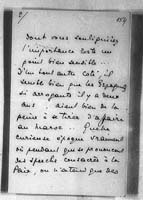 2/ 157
dont vous soulignez
l'importance est un
point bien sensible...
D'un tout autre côté, il
semble bien que les Espagnols
si arrogants il y a deux
ans... aient bien de la
peine à se tirer d'affaire
au Maroc... Quelle
curieuse époque vraiment
où pendant que se prononcent
des speechs consacrés à la
Paix, on n'entend que des